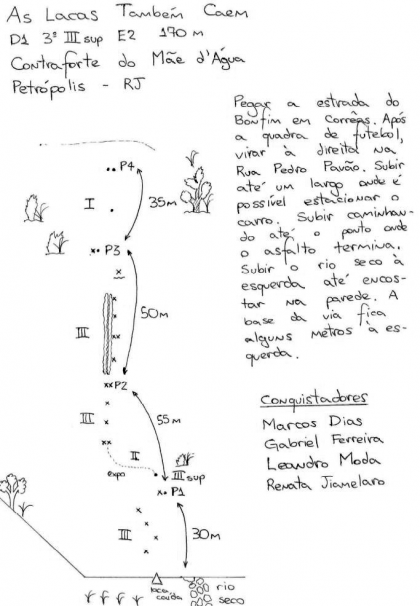 As Lacas Também Caem
D1 3º III sup E2 170 m
Contraforte do Mãe d'Água
Petrópolis - RJ
Pegar a estrada do
Bonfim em Corrêas. Após
a quadra de futebol,
virar à direita na
Rua Pedro Pavão. Subir
até um largo onde é
possível estacionar o
carro. Subir caminhan-
do até o ponto onde
o asfalto termina.
Subir o rio seco à
esquerda até encos-
tar na parede. A
base da via fica
alguns metros à es-
querda.
P4
I
35m
P3
50m
III
P2
III
55 m
II
expo
III sup
P1
III
30m
laca
caída
rio
seco
Conquistadores
Marcos Dias
Gabriel Ferreira
Leandro Moda
Renata Jiamelaro